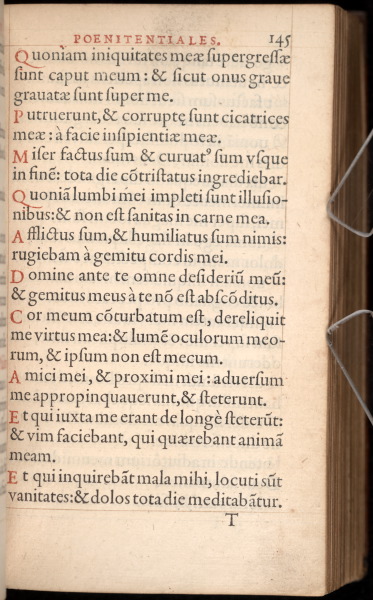 POENITENTIALES. 145
Quoniam iniquitates meæ supergressæ
sunt caput meum: & sicut onus graue
grauatæ sunt super me.
Putruerunt, & corruptę sunt cicatrices
meæ: à facie insipientiæ meæ.
Miser factus sum & curuatꝰ sum vsque
in finē: tota die cōtristatus ingrediebar.
Quoniā lumbi mei impleti sunt illusio-
nibus: & non est sanitas in carne mea.
Afflictus sum, & humiliatus sum nimis:
rugiebam à gemitu cordis mei.
Domine ante te omne desideriū meū:
& gemitus meus à te nō est abscōditus.
Cor meum cōturbatum est, dereliquit
me virtus mea: & lumē oculorum meo-
rum, & ipsum non est mecum.
Amici mei, & proximi mei: aduersum
me appropinquauerunt, & steterunt.
Et qui iuxta me erant de longè steterūt:
& vim faciebant, qui quærebant animā
meam.
Et qui inquirebāt mala mihi, locuti sūt
vanitates: & dolos tota die meditabātur.
T